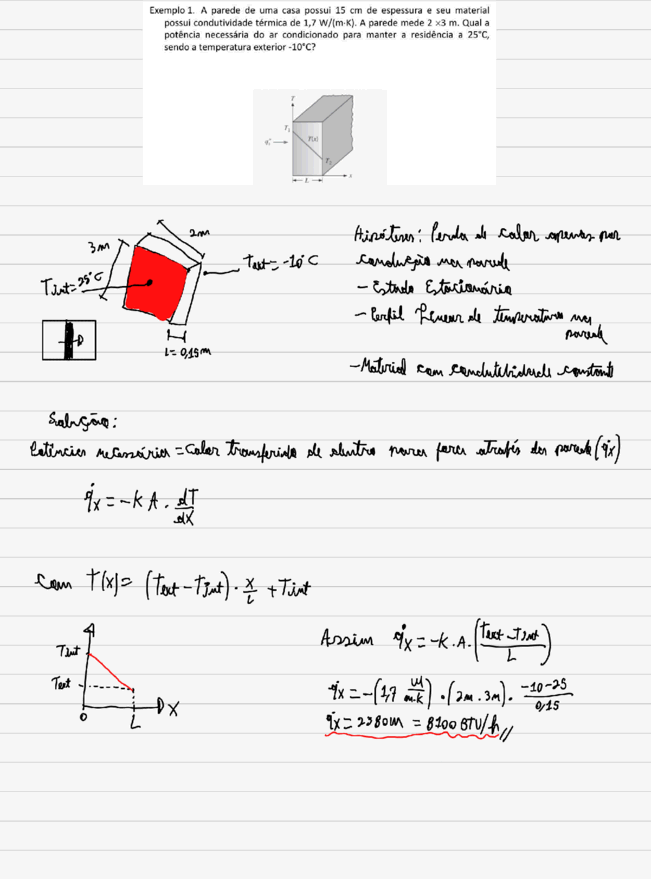 Exemplo 1. A parede de uma casa possui 15 cm de espessura e seu material
possui condutividade térmica de 1,7 W/(m·K). A parede mede 2 ×3 m. Qual a
potência necessária do ar condicionado para manter a residência a 25°C,
sendo a temperatura exterior -10°C?
T
T₁
T(x)
qₓ"
T₂
L
x
2m
3m
Tint=25°C
Text=-10°C
L= 0,15m
Hipóteses: Perda de calor apenas por
condução na parede
- Estado Estacionário
- Perfil Linear de temperatura na
parede
- Material com condutibidade constante
Solução:
Potência necessária = Calor transferido de dentro para fora através da parede (q̇x)
q̇x = -k A . dT/dX
Com T(x) = (Text - Tint) . x/L + Tint
Tint
Text
0
L
X
Assim q̇x = -k.A.((Text - Tint)/L)
q̇x = -(1,7 W/m.k) . (2m . 3m) . (-10-25)/0,15
q̇x = 2380W = 8100 BTU/h //